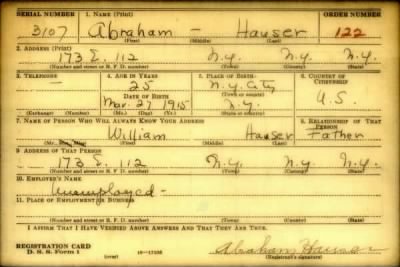 SERIAL NUMBER 1. NAME (Print) ORDER NUMBER
3107 Abraham — Hauser 122
(First) (Middle) (Last)
2. ADDRESS (Print)
173 E. 112 N.Y. N.Y. N.Y.
(Number and street or R. F. D. number) (Town) (County) (State)
3. TELEPHONE 4. AGE IN YEARS 5. PLACE OF BIRTH 6. COUNTRY OF CITIZENSHIP
— 25 N.Y. City
DATE OF BIRTH (Town or county)
Mar. 27 1915 N.Y. U.S.
(Exchange) (Number) (Mo.) (Day) (Yr.) (State or country)
7. NAME OF PERSON WHO WILL ALWAYS KNOW YOUR ADDRESS 8. RELATIONSHIP OF THAT PERSON
William Hauser Father
(First) (Middle) (Last)
9. ADDRESS OF THAT PERSON
173 E. 112 N.Y. N.Y. N.Y.
(Number and street or R. F. D. number) (Town) (County) (State)
10. EMPLOYER'S NAME
Unemployed -
11. PLACE OF EMPLOYMENT OR BUSINESS
(Number and street or R. F. D. number) (Town) (County) (State)
I AFFIRM THAT I HAVE VERIFIED ABOVE ANSWERS AND THAT THEY ARE TRUE.
REGISTRATION CARD
D. S. S. Form 1 (over) Abraham Hauser
(Registrant's signature)